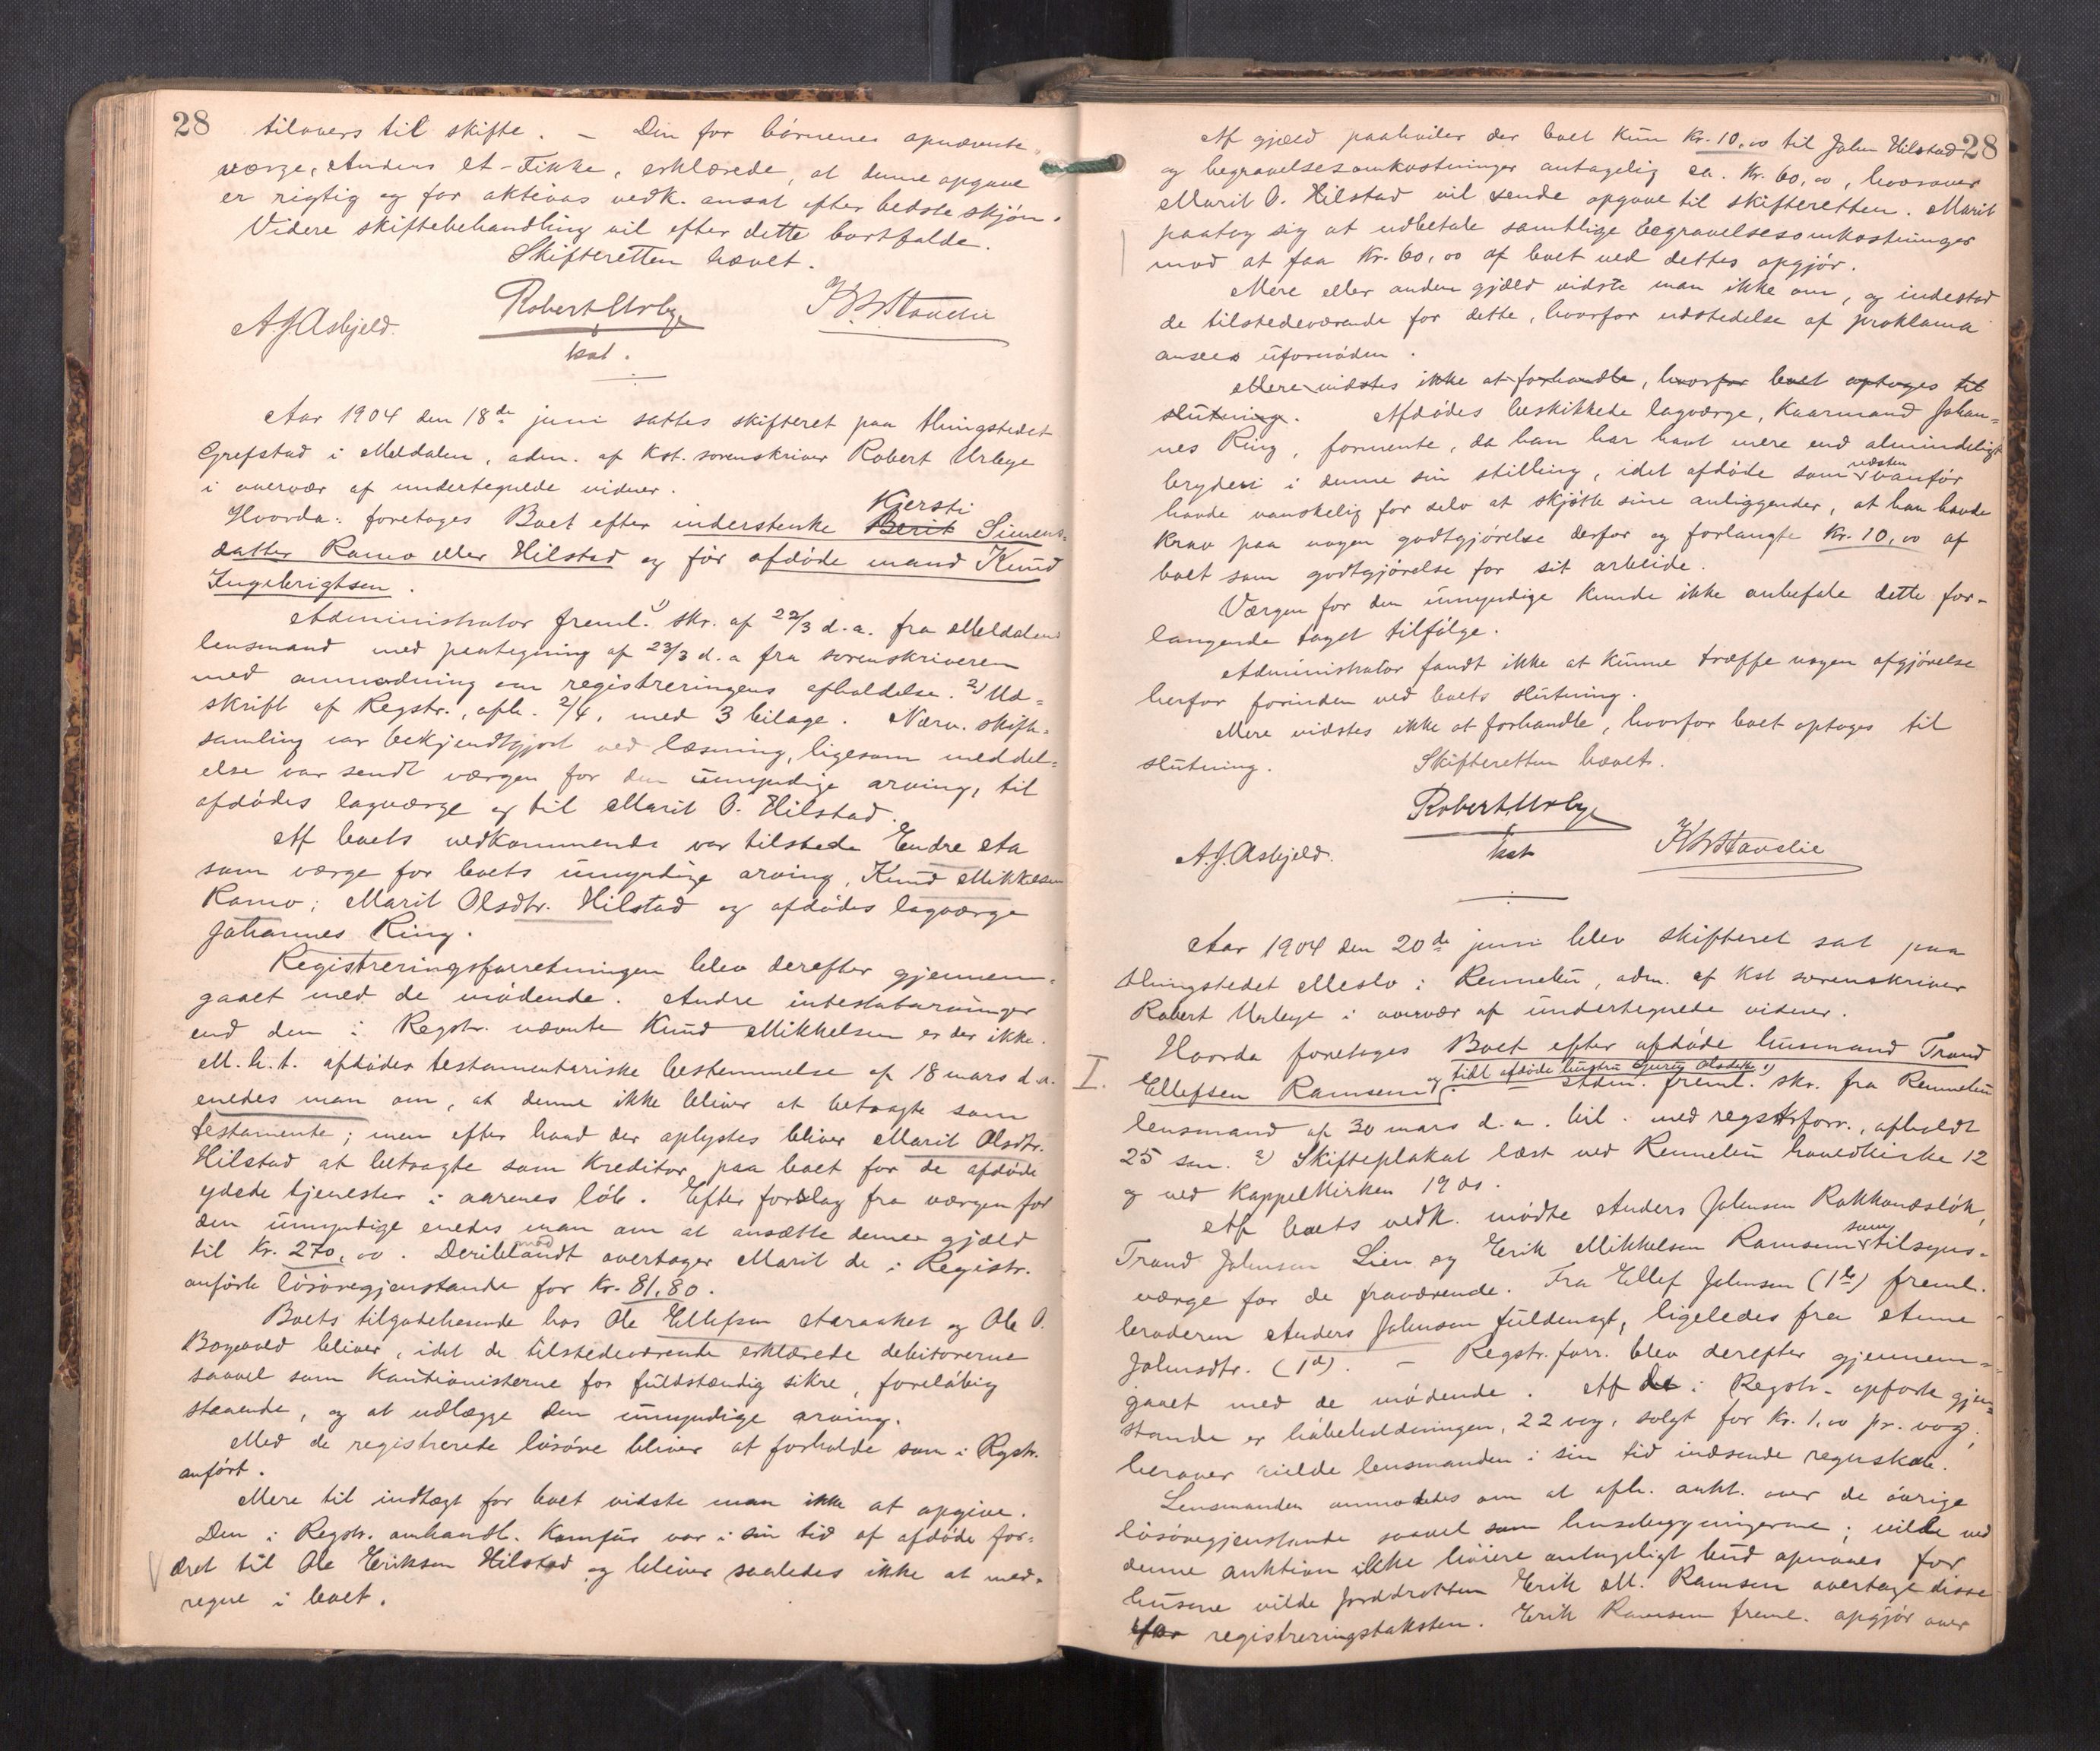 28
tilovers til skifte. — Den for børnenes opnævnte
værge, Anders A-Fikke, erklærede, at denne opgave
er rigtig og for aktivas vedk. ansat efter bedste skjøn.
Videre skiftebehandling vil efter dette bortfalde.
Skifteretten hævet.
Robert Urbye
A J Asbjeld.
kst.
Aar 1904 den 18de juni sattes skifteret paa thingstedet
Grefstad i Meldalen, adm. af kst. sorenskriver Robert Urbye
i overvær af undertegnede vidner.
Kjersti
Hvorda: foretoges Boet efter inderstenke Berit Simens-
datter Ramo eller Hilstad og før afdøde mand Knud
Ingebrigtsen.
Administrator freml. 1) skr. af 22/3 d.a. fra Meldalens
lensmand med paategning af 23/3 d.a fra sorenskriveren
med anmodning om registreringens afholdelse. 2) Ud-
skrift af Regstr., afh. 2/4, med 3 bilage. Nærv. skifte-
samling var bekjendtgjort ved læsning, ligesom meddel-
else var sendt værgen for den umyndige arving, til
afdødes lagværge og til Marit O. Hilstad.
Af boets vedkommende var tilstede Endre Aa
som værge for boets umyndige arving, Knud Mikkelsen
Ramo; Marit Olsdtr. Hilstad og afdødes lagværge
Johannes Ring.
Registreringsforretningen blev derefter gjennem-
gaaet med de mødende. Andre intestatarvinger
end den i Regstr. nævnte Knud Mikkelsen er der ikke.
M.h.t. afdødes testamentariske bestemmelse af 18 mars d.a.
enedes man om, at denne ikke bliver at betragte som
testamente; men efter hvad der oplystes bliver Marit Olsdtr.
Hilstad at betragte som kreditor paa boet for de afdøde
ydede tjenester i aarenes løb. Efter forslag fra værgen for
den umyndige enedes man om at ansætte denne gjæld
mod
til kr. 270,00. Deriblandt overtager Marit de i Registr.
anførte løsøregjenstande for kr. 81,80.
Boets tilgodehavende hos Ole Ellefsen Aaraaket og Ole O.
bliver, idet de tilstedeværende erklærede debitorerne
saavel som kautionisterne for fuldstændig sikre, foreløbig
staaende, og at udlægge den umyndige arving.
Med de registrerede løsøre bliver at forholde som i Rgstr.
anført.
Mere til indtægt for boet vidste man ikke at opgive.
Den i Regstr. omhandl. komfur var i sin tid af afdøde for-
æret til Ole Eriksen Hilstad og bliver saaledes ikke at med-
regne i boet.
28
Af gjæld paahviler der boet kun kr. 10,00 til John Hilstad
og begravelsesomkostninger antagelig ca. kr. 60,00, hvorover
Marit O. Hilstad vil sende opgave til skifteretten. Marit
paatog sig at udbetale samtlige begravelsesomkostninger
mod at faa kr. 60,00 af boet ved dettes opgjør.
Mere eller anden gjæld vidste man ikke om, og indestod
de tilstedeværende for dette, hvorfor udstedelse af proklama
ansees ufornøden.
Mere vidstes ikke at forhandle, hvorfor boet optoges til
slutning. Afdødes beskikkede lagværge, kaarmand Johan-
nes Ring, formente, da han har havt mere end almindeligt
næsten
bryderi i denne sin stilling, idet afdøde som vanfør
havde vanskelig for selv at skjøtte sine anliggender, at han havde
krav paa nogen godtgjørelse derfor og forlangte kr. 10,00 af
boet som godtgjørelse for sit arbeide.
Værgen for den umyndige kunde ikke anbefale dette for-
langende taget tilfølge.
Administrator fandt ikke at kunne træffe nogen afgjørelse
herfor forinden ved boets slutning.
Mere vidstes ikke at forhandle, hvorfor boet optoges til
slutning. Skifteretten hævet.
Robert Urbye
A.J. Asbjeld. kst
Aar 1904 den 20de juni blev skifteret sat paa
thingstedet Meslo i Rennebu, adm. af kst sorenskriver
Robert Urbye i overvær af undertegnede vidner.
Hvorda foretoges Boet efter afdøde husmand Trond
og tidl afdøde hustru Guru Olsdatter 1)
I.
Ellefsen Ramsem. Adm. freml. skr. fra Rennebu
lensmand af 30 mars d.a. bil. med regstrforr., afholdt
25 sm. 2) Skifteplakat læst ved Rennebu hovedkirke 12
og ved kappelkirken 19 ds.
Af boets vedk. mødte Anders Johnsen Rokkonesløk,
som
Trond Johnsen Lien og Erik Mikkelsen Ramsem tilsyns-
værge for de fraværende. Fra Ellef Johnsen (1b) freml.
broderen Anders Johnsen fuldmagt, ligeledes fra Anne
Johnsdtr. (1d). — Regstr.forr. blev derefter gjennem-
gaaet med de mødende. Af de i Regstr. opførte gjen-
stande er høbeholdningen, 22 vog, solgt for kr. 1,00 pr. vog;
herover vilde lensmanden i sin tid indsende regnskab.
Lensmanden anmodedes om at afh. aukt. over de øvrige
løsøregjenstande saavel som husebygningerne; vilde ved
denne auktion ikke høiere antageligt bud opnaaes for
husene vilde jorddrotten Erik M. Ramsem overtage disse
for registreringstaksten. Erik Ramsem freml. opgjør over